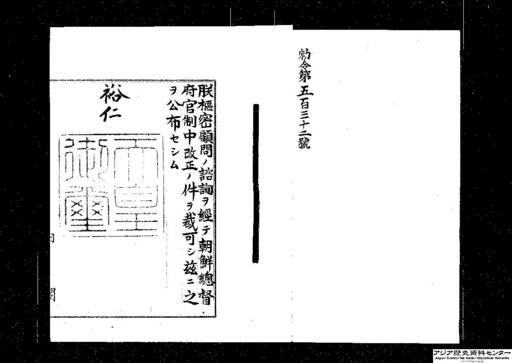 勅令第五百三十二號
朕樞密顧問ノ諮詢ヲ經テ朝鮮總督
府官制中改正ノ件ヲ裁可シ茲ニ之
ヲ公布セシム
裕仁
天皇
御璽
内閣
アジア歴史資料センター
Japan Center for Asian Historical Records